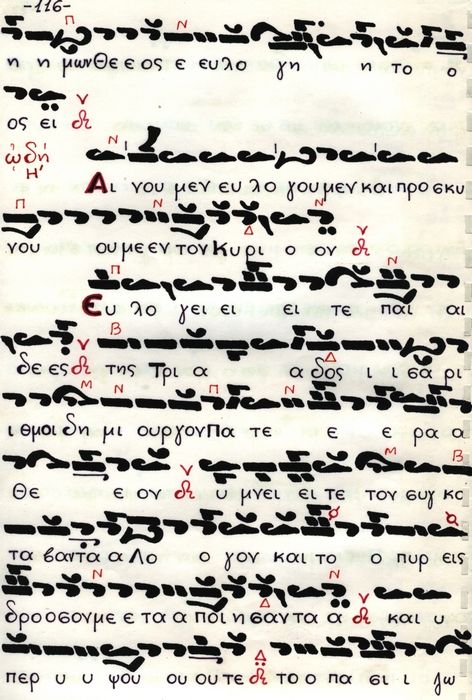 -116-
η η μωνΘε ε ος ε ευλο γη η το ο
ος ει
ᾠδή Η'
Αι νου μεν ευ λο γου μεν και προ σκυ
νου ου με εν τον Κυ ρι ο ον
Ευ λο γει ει ει τε παι αι
δε ες της Τρι α α δος ι ι σα ρι
ι θμοι δη μι ουργονΠα τε ε ε ρα α
Θε ε ον υ μνει ει τε τον συγ κα
τα βαντα α Λο ο γον και το ο πυρ εις
δροσονμε ε τα α ποι η σαντα α και υ
περ υ υ ψου ου ου τε το ο πα σι ι ζω